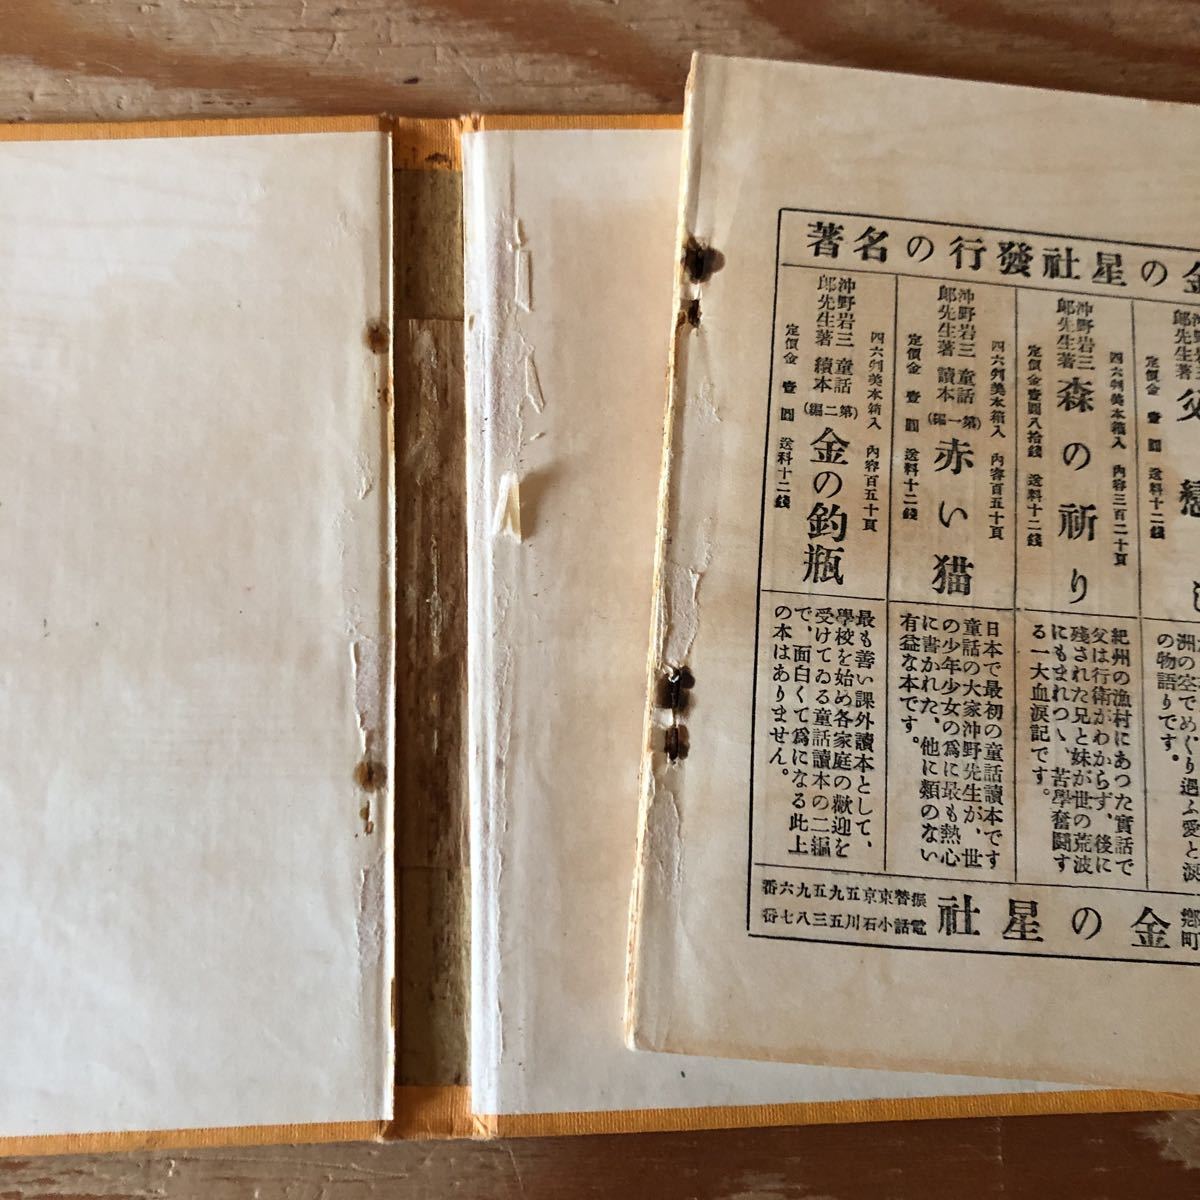 金の星社發行の名著
沖野岩三
郎先生著
定價金壹圓 送料十二錢
の物語りです。
沖野岩三
郎先生著
森の祈り
四六判美本箱入 內容三百二十頁
定價金壹圓八拾錢 送料十二錢
紀州の漁村にあつた實話で
父は行衛がわからず、後に
殘された兄と妹が世の荒波
にもまれつゝ、苦學奮鬪す
る一大血淚記です。
沖野岩三
郎先生著
童話
讀本
(第一編)
赤い猫
四六判美本箱入 內容百五十頁
定價金壹圓 送料十二錢
日本で最初の童話讀本です
童話の大家沖野先生が、世
の少年少女の爲に最も熱心
に書かれた、他に類のない
有益な本です。
沖野岩三
郎先生著
童話
續本
(第二編)
金の釣瓶
四六判美本箱入 內容百五十頁
定價金壹圓 送料十二錢
最も善い課外讀本として、
學校を始め各家庭の歡迎を
受けてゐる童話讀本の二編
で、面白くて爲になる此上
の本はありません。
鄕
町
金の星社
振替東京五九五九六番
電話小石川五三八七番